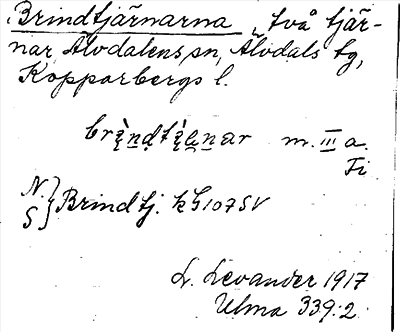 Brindtjärnarna, två tjär-
nar, Älvdalens sn, Älvdals tg,
Kopparbergs l.
m. III a.
Ti
N. } Brindtj. kb 107 SV
S
L. Levander 1917
Ulma 339:2.